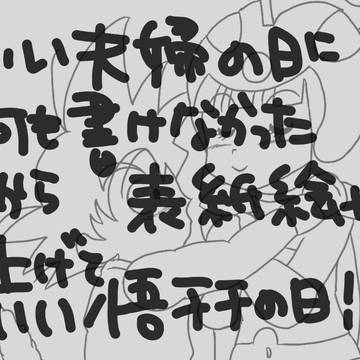 いい夫婦の日に
何も書けなかった
から 表紙絵
上げて
いい悟チチの日!